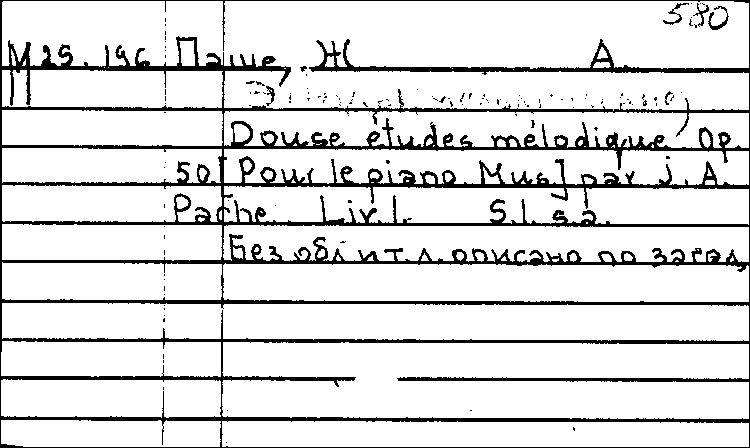 580
М 25.196 Паше, Ж А.
Douse études mélodique, Op.
50 [Pour le piano Mus] par J. A.
Pache. Liv. I. S.l. s.a.
Без обл и т. л. описано по загал,